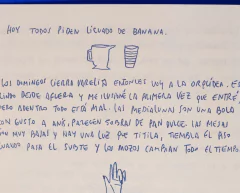 HOY TODOS PIDEN LICUADO DE BANANA.
LOS DOMINGOS CIERRA VARELITA ENTONCES VOY A LA ORQUÍDEA. ES
LINDO DESDE AFUERA Y ME ILUSIONÉ LA PRIMERA VEZ QUE ENTRÉ
PERO ADENTRO TODO ESTÁ MAL. LAS MEDIALUNAS SON UNA BOLA
CON GUSTO A ANÍS, PARECEN SOBRAS DE PAN DULCE. LAS MESAS
SON MUY BAJAS Y HAY UNA LUZ QUE TITILA, TIEMBLA EL PISO
CUANDO PASA EL SUBTE Y LOS MOZOS CAMBIAN TODO EL TIEMPO